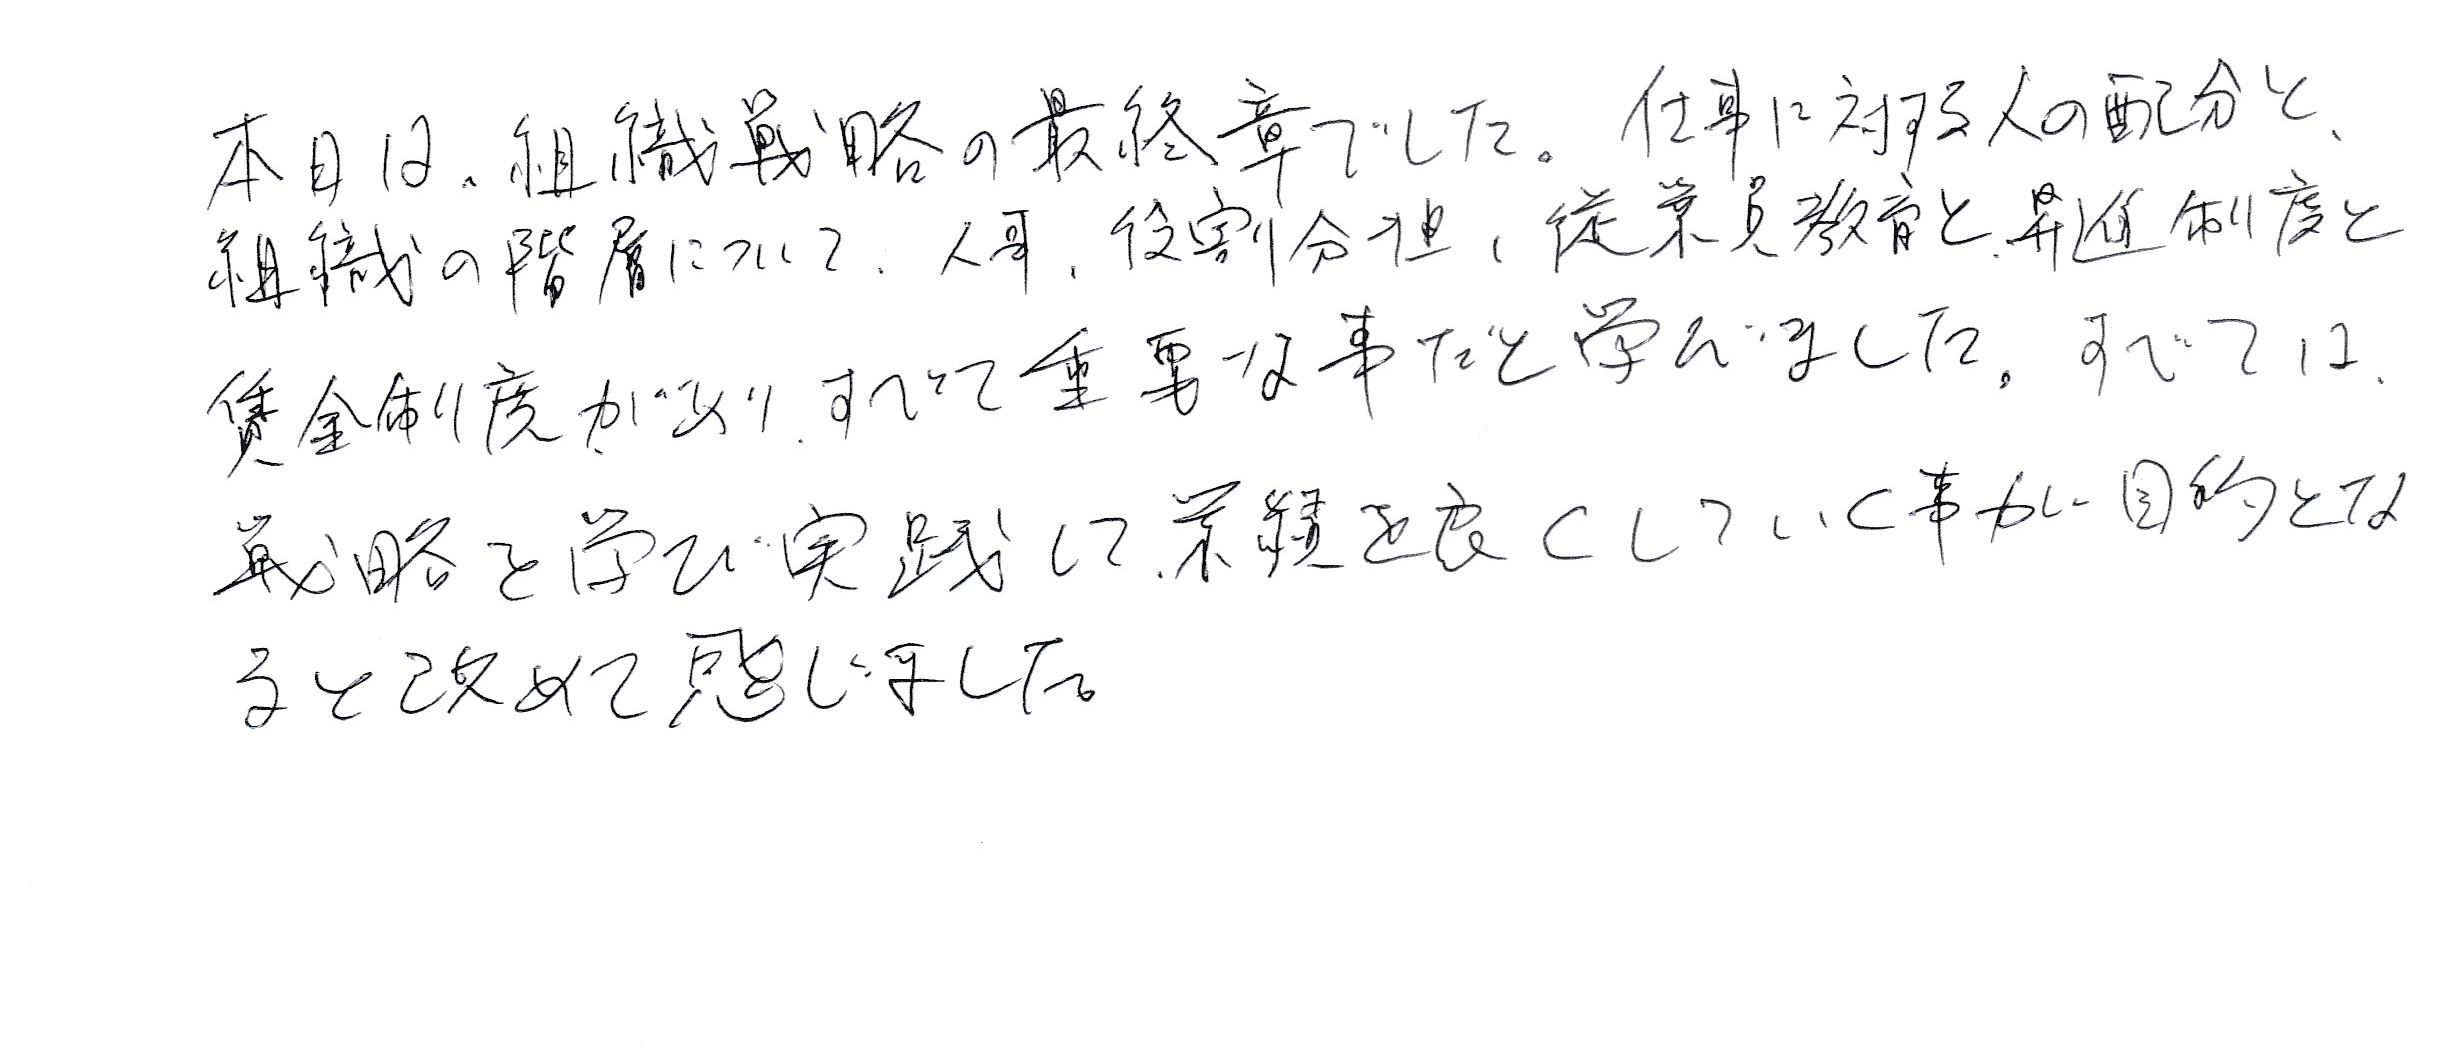 本日は、組織戦略の最終章でした。仕事に対する人の配分と、
組織の階層について、人事、役割分担、従業員教育と、昇進制度と
賃金制度があり、すべて重要な事だと学びました。すべては、
戦略を学び実践して、業績を良くしていく事が目的とな
ると改めて感じました。